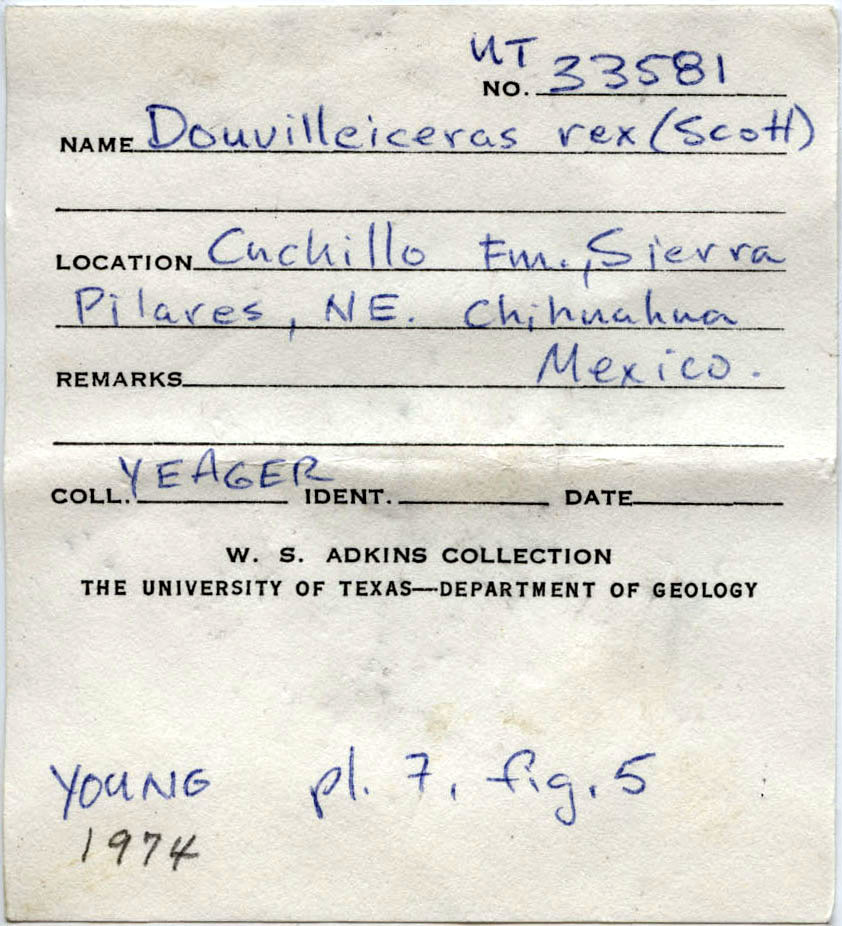 UT
NO. 33581
NAME Douvilleiceras rex (Scott)
LOCATION Cuchillo Fm., Sierra
Pilares, NE. Chihuahua
Mexico.
REMARKS
COLL. YEAGER IDENT. DATE
W. S. ADKINS COLLECTION
THE UNIVERSITY OF TEXAS—DEPARTMENT OF GEOLOGY
YOUNG pl. 7, fig. 5
1974